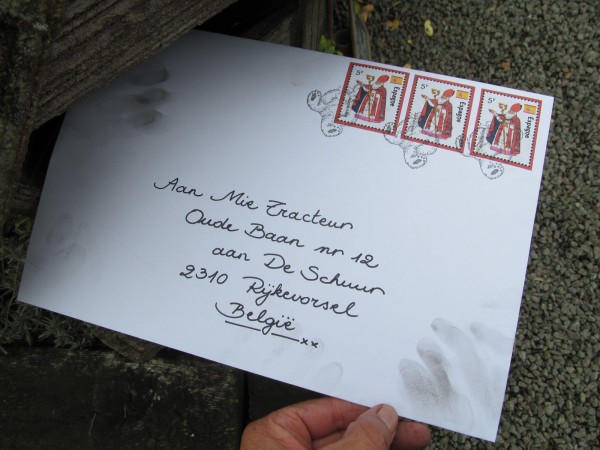 5F Espagne
5F Espagne
5F Espagne
Aan Mie Tracteur
Oude Baan nr 12
aan De Schuur
2310 Rijkevorsel
België
xx